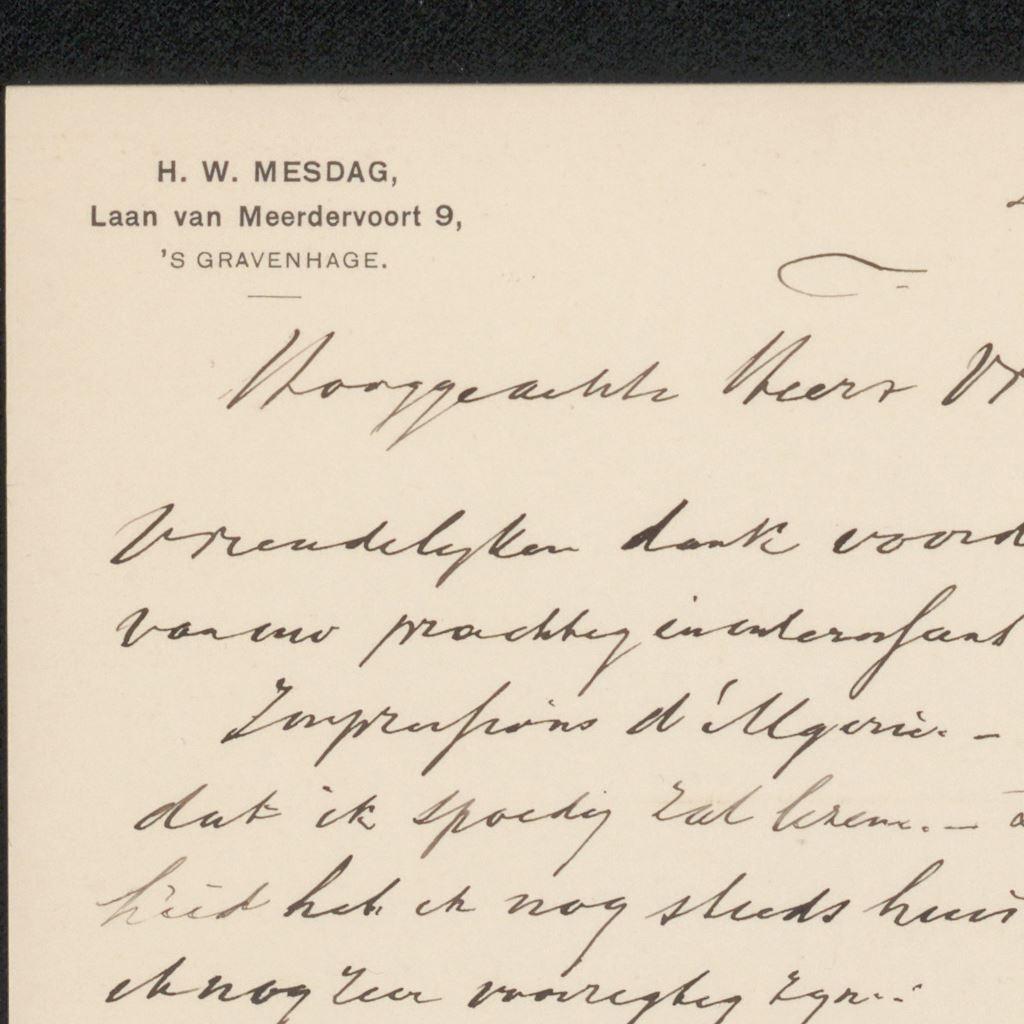 H. W. MESDAG,
Laan van Meerdervoort 9,
'S GRAVENHAGE.
Hooggeachte Heer Vr
Vriendelyken dank voord
van uw prachtig en interessant
Impressions d'Algerie. -
dat ik spoedig zal lezen. -
heb ik nog steeds huis
ik nog zeer voorzigtig zyn.